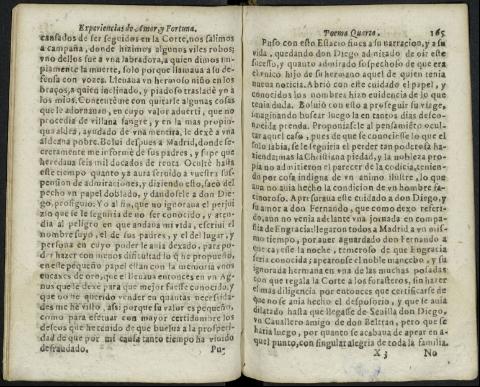 Experiencias de Amor, y Fortuna.
cansados de ser seguidos en la Corte, nos salimos
a campaña, donde hizimos algunos viles robos;
vno dellos fue a vna labradora, a quien dimos im-
piamente la muerte, solo porque llamaua a su de-
fensa con vozes. Lleuaua vn hermoso niño en los
braços, a quien inclinado, y piadoso trasladè yo a
los mios. Contentème con quitarle algunas cosas
que le adornauan, en cuyo valor aduertì, que no
procedia de villana sangre, y en la mas propin-
qua aldea, ayudado de vna mentira, le dexè a vna
aldeana pobre. Boluì despues a Madrid, donde se-
cretamente me informè de sus padres, y supe que
heredaua seis mil ducados de renta Ocultè hasta
este tiempo quanto ya aura seruido a vuestra sus-
pension de admiraciones, y diziendo esto, sacò del
pecho vn papel doblado, y dandosele a don Die-
go, prosiguio: Yo al fin, que no ignoraua el perjui
zio que se le seguiria de no ser conocido, y aten-
dia al peligro en que andaua mi vida, escriui el
nombre suyo, el de sus padres, y el del lugar, y
persona en cuyo poder le auia dexado, para po-
der hazer con menos dificultad lo q̃ he propuesto,
en este pequeño papel estan con la memoria vnos
encaxes de oro, que el lleuaua entonces en vn Ag-
nus que le dexè para que mejor fuesse conocido, y
que no he querido vender en quantas necessida-
des me he visto, assi porque su valor es pequeño,
como para estituar con mayor certidumbre los
desseos que he tenido de que buelua a la prosperi-
dad de que por mi causa tanto tiempo ha viuido
defraudado.
Pu-
Poema Quarto.
165
Puso con esto Estacio fines a su narracion, y a su
vida, quedando don Diego admirado de oir este
sucesso, y quanto admirado sospechoso de que era
el vnico hijo de su hermano aquel de quien tenia
nueua noticia. Abriò con este cuidado el papel, y
conocidos los nombres hizo euidencia de lo que
tenia duda. Boluiò con esto a proseguir su viage,
imaginando buscar luego la en tantos dias desco-
nocida prenda. Proponiasele al pensamiento ocul-
tar aquel caso, pues de que se conociesse lo que el
solo sabia, se le seguiria el perder tan poderosa ha-
zienda; mas la Christiana piedad, y la nobleza pro-
pia no admitieron el parecer de la codicia, tenien-
do por cosa indigna de vn animo ilustre, lo que
aun no auia hecho la condicion de vn hombre fa-
cinoroso. Apresuraua este cuidado a don Diego, y
su amor a don Fernando, que como dexo referi-
do, aun no venia adelante vna jornada en compa-
ñia de Engracia: llegaron todos a Madrid a vn mis-
mo tiempo, por auer aguardado don Fernando a
que cayesse la noche, temeroso de que Engracia
seria conocida; apearonse el noble mancebo, y su
ignorada hermana en vna de las muchas posadas
con que regala la Corte a los forasteros, sin hazer
el mas diligencia por entonces que certificarse de
que no se auia hecho el desposorio, y que se auia
dilatado hasta que llegasse de Seuilla don Diego,
vn Cauallero amigo de don Beltran, pero que se
haria luego, por quanto se acabaua de apear en a-
quel punto, con singular alegria de toda la familia.
X 3
No